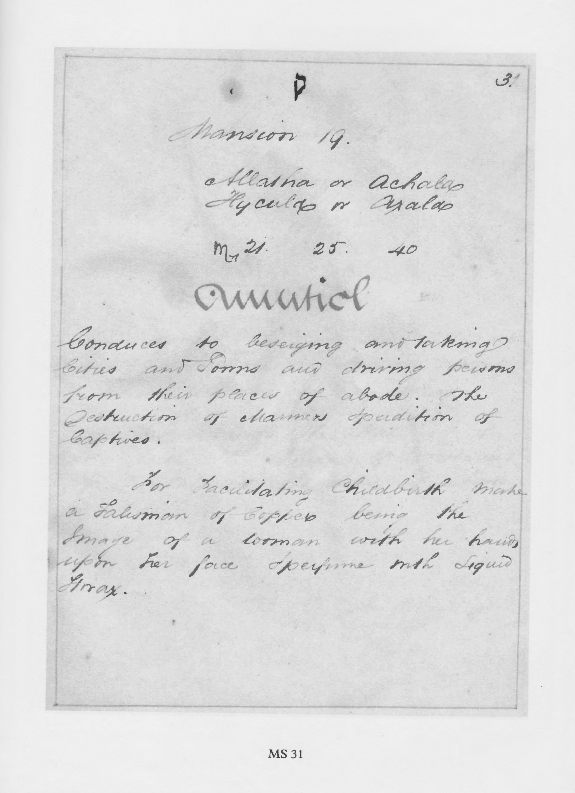 ק 31
Mansion 19.
Allatha or Achala
Hycula or Axala
♏ 21. 25. 40
Amutiel
Conduces to beseiging and taking
Cities and Towns and driving persons
from their places of abode. The
Destruction of Mariners & perdition of
Captives.
For Facilitating Childbirth make
a Talisman of Copper being the
Image of a woman with her hands
upon her face & perfume with Liquid
Storax.
MS 31